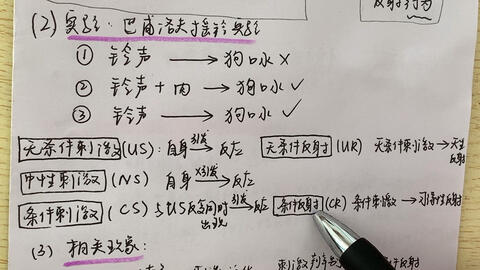 反射行为
(2) 实验：巴甫洛夫摇铃实验
① 铃声 → 狗口水 ×
② 铃声 + 肉 → 狗口水 ✓
③ 铃声 → 狗口水 ✓
无条件刺激 (US)：自身 引发→ 反应 无条件反射 (UR) 无条件刺激 → 天性反射
中性刺激 (NS) 自身 ×引发→ 反应
条件刺激 (CS) 与US反复同时出现 引发→ 反应 条件反射 (CR) 条件刺激 → 习得性反射
(3) 相关现象：